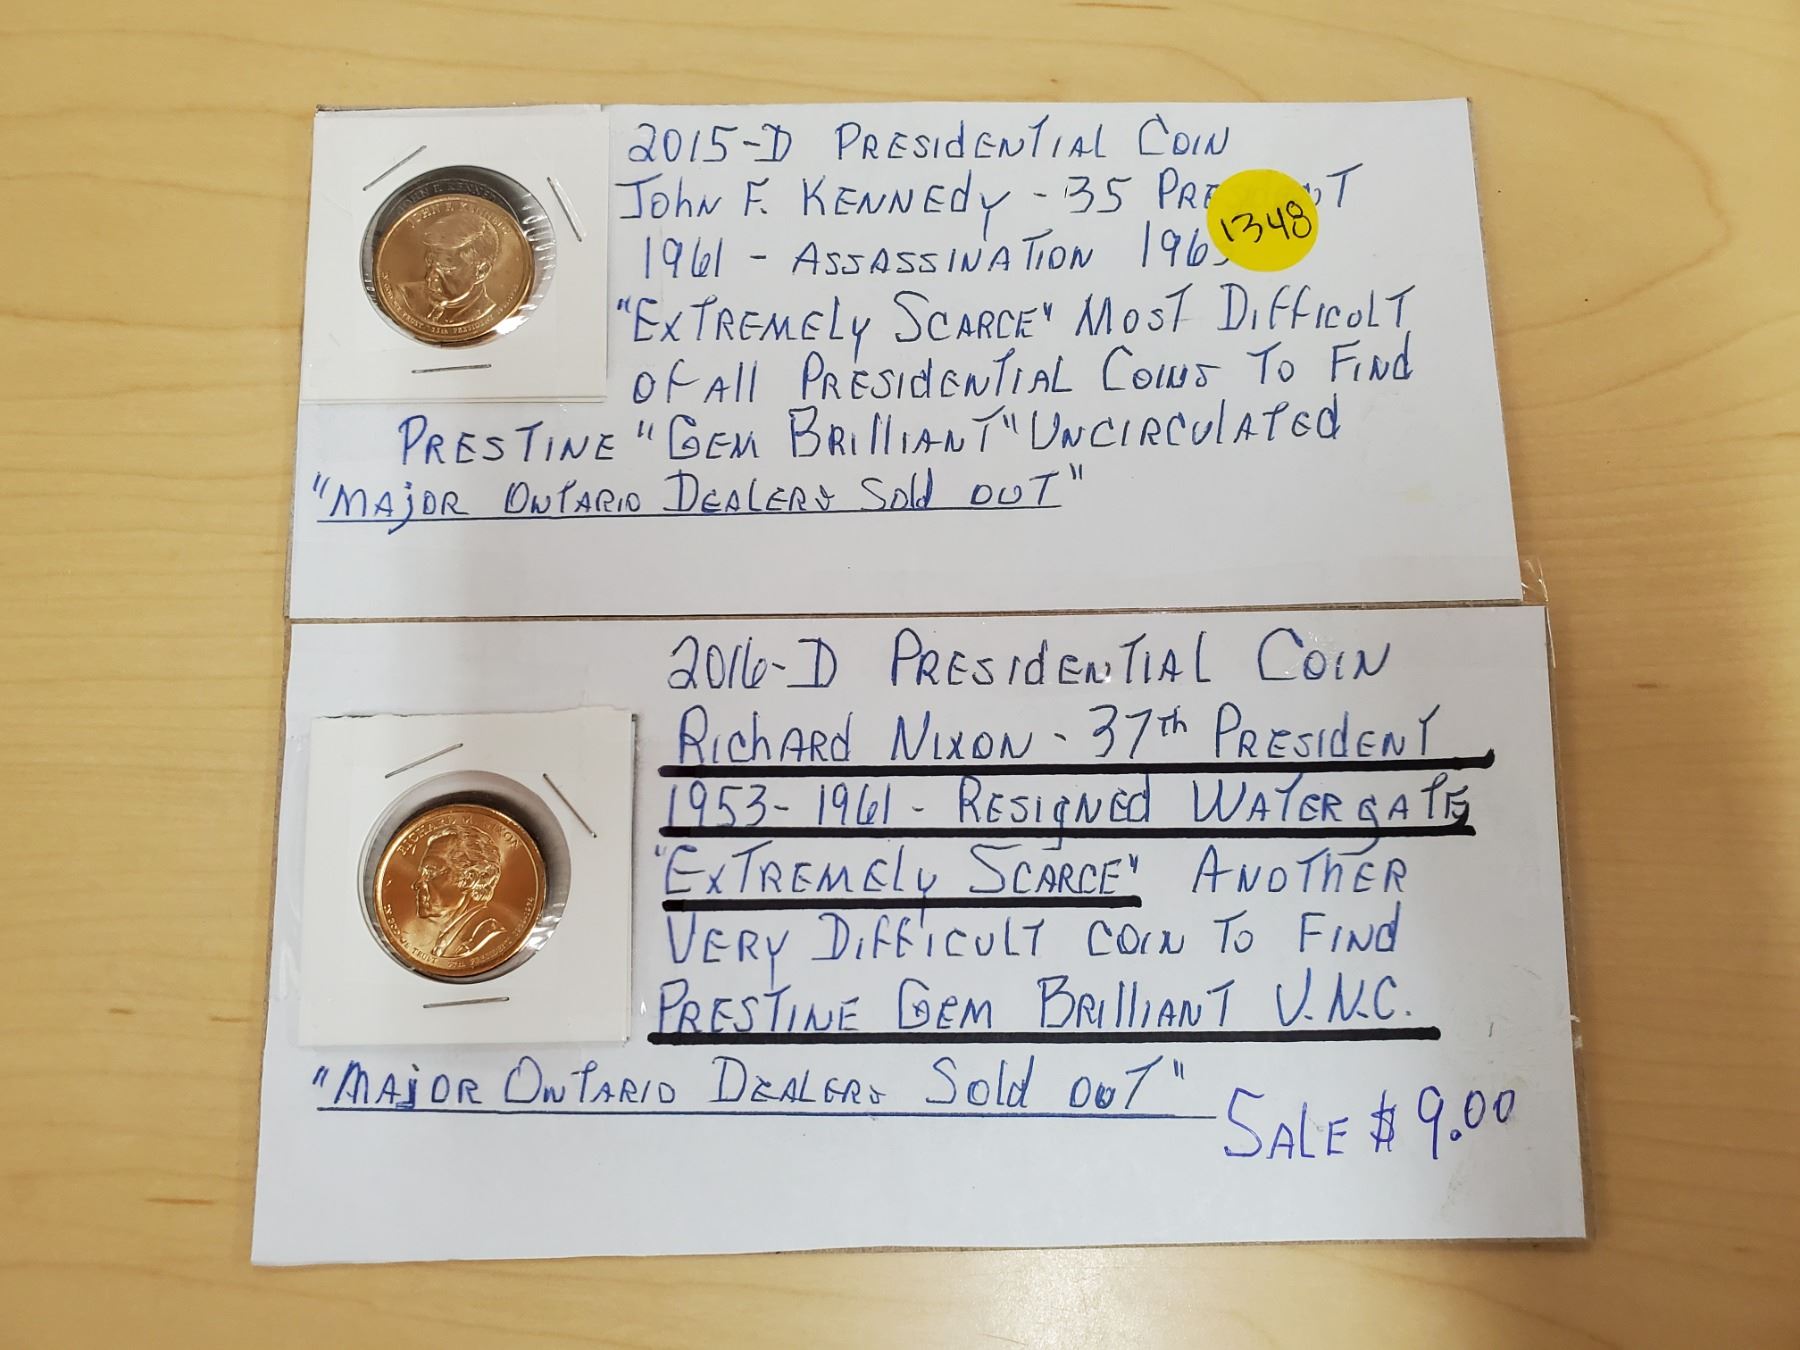 2015-D PRESIDENTIAL COIN
JOHN F. KENNEDY - 35
1348
1961 - ASSASSINATION
"EXTREMELY SCARCE" MOST DIFFICULT
OF ALL PRESIDENTIAL COINS TO FIND
PRESTINE "GEM BRILLIANT" UNCIRCULATED
"MAJOR ONTARIO DEALERS SOLD OUT"
JOHN F. KENNEDY
35th PRESIDENT
2016-D PRESIDENTIAL COIN
RICHARD NIXON - 37th PRESIDENT
1953-1961 - RESIGNED WATERGATE
"EXTREMELY SCARCE" ANOTHER
VERY DIFFICULT COIN TO FIND
PRESTINE GEM BRILLIANT U.N.C.
"MAJOR ONTARIO DEALERS SOLD OUT"
SALE $9.00
RICHARD M. NIXON
IN GOD WE TRUST 37th PRESIDENT 1969-1974